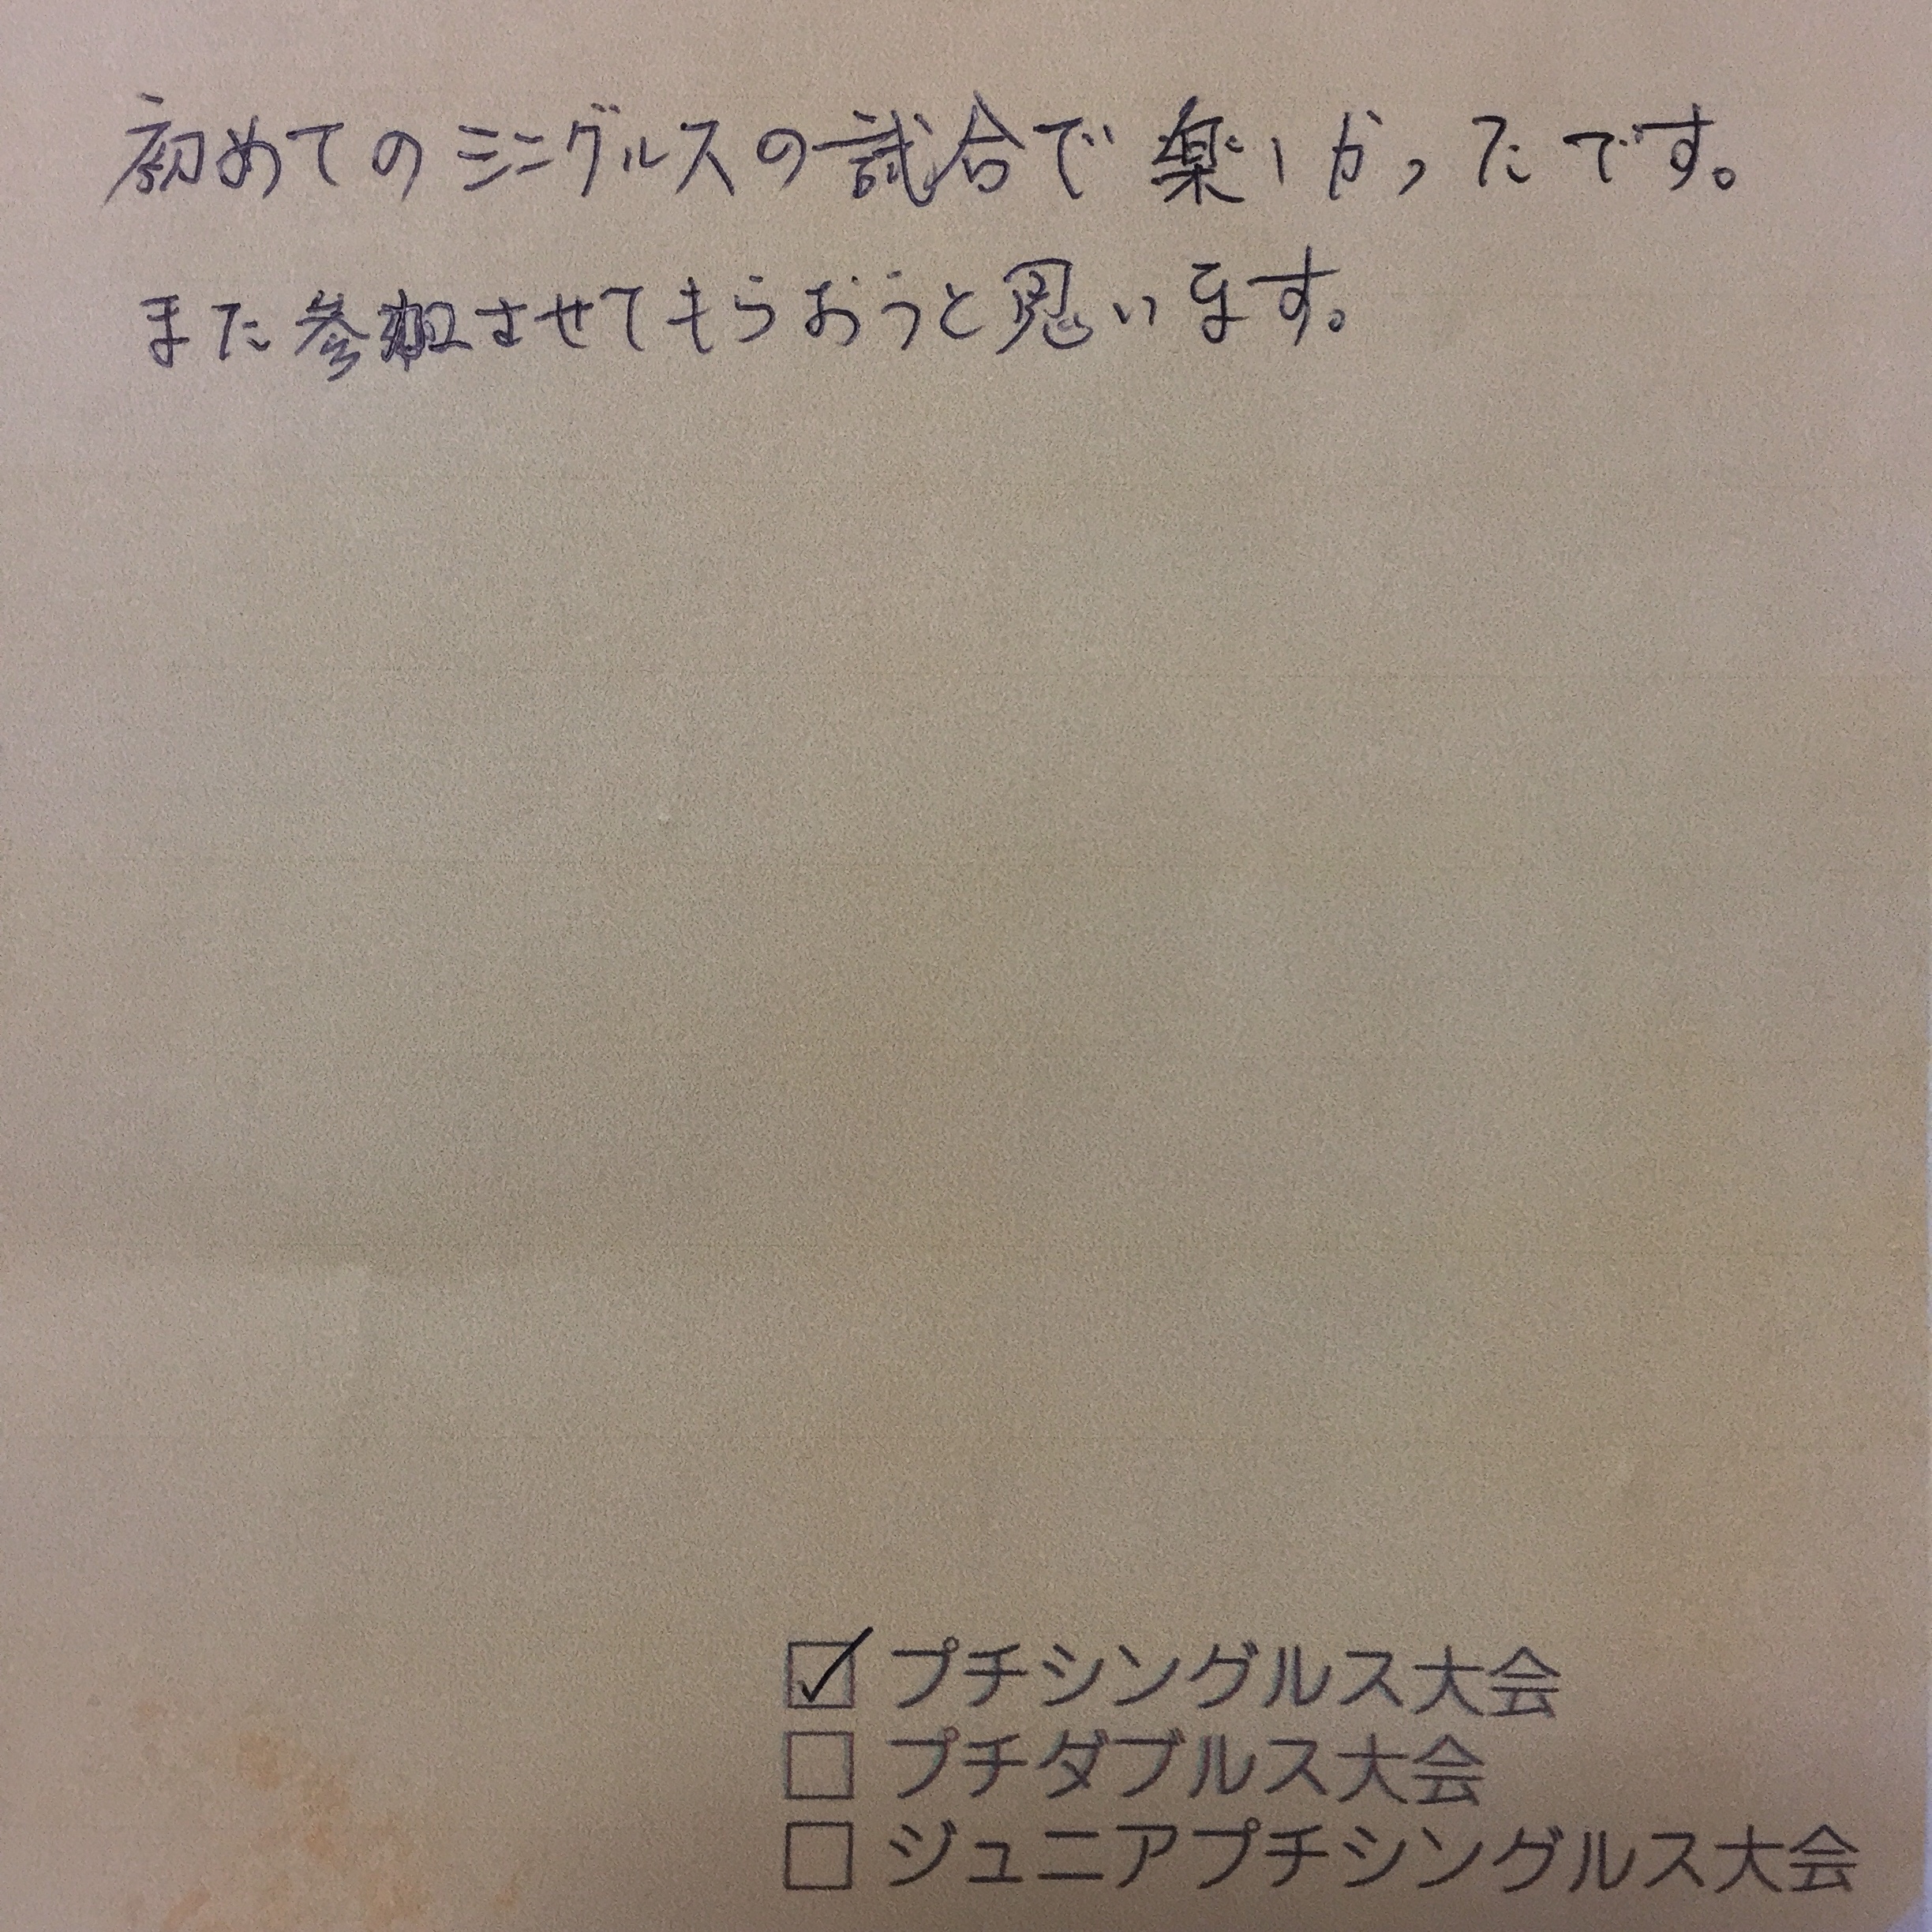 初めてのシングルスの試合で楽しかったです。
また参加させてもらおうと思います。
☑ プチシングルス大会
☐ プチダブルス大会
☐ ジュニアプチシングルス大会